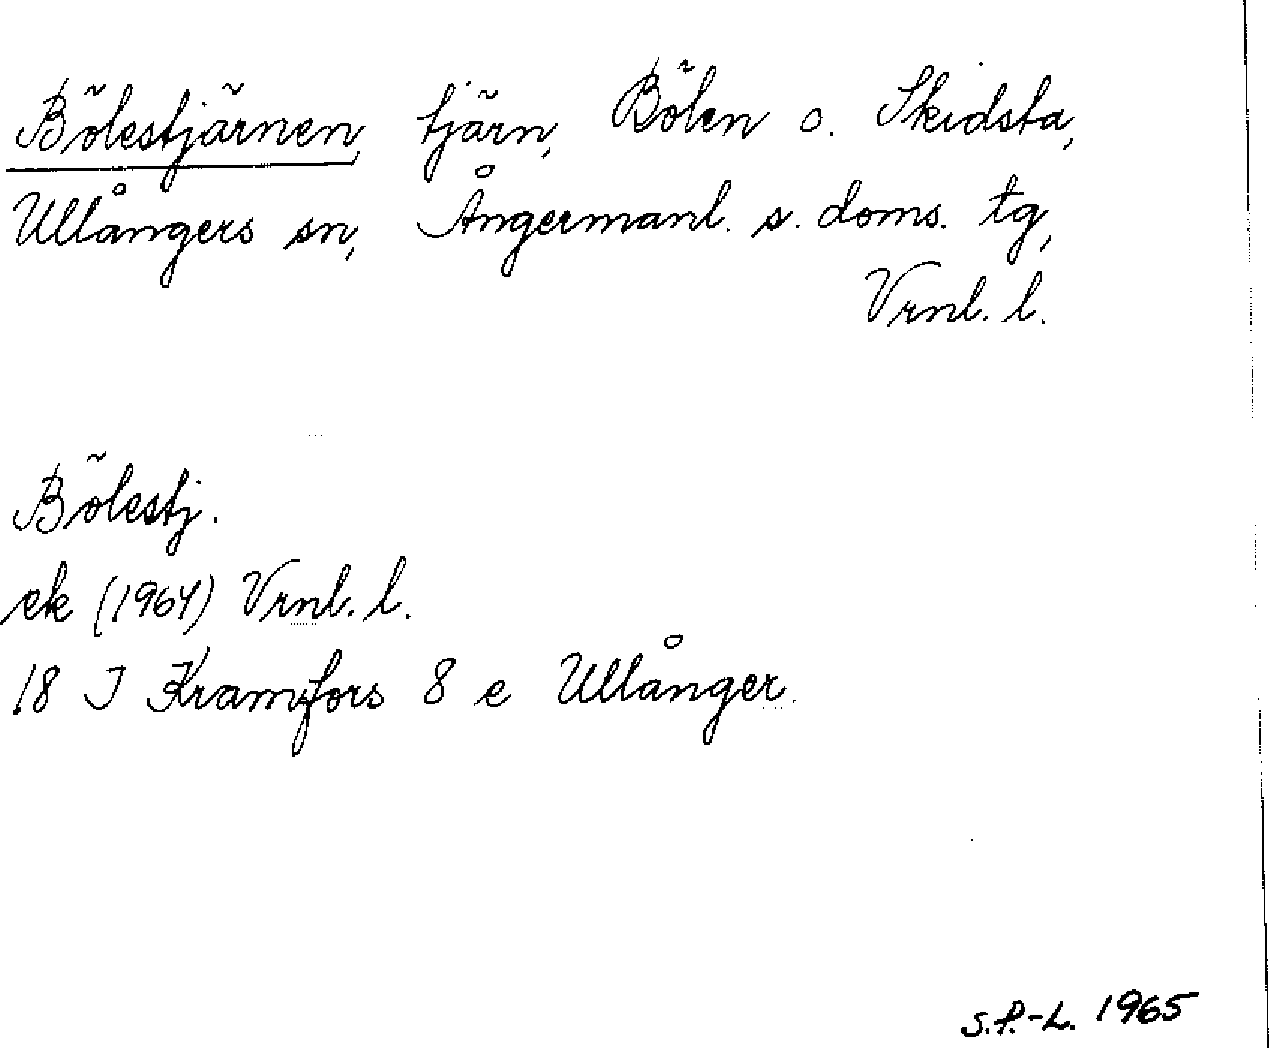 Bölestjärnen, tjärn, Bölen o. Skidsta,
Ullångers sn, Ångermanl. s. doms. tg,
Vrnl. l.
Bölestj.
ek (1964) Vrnl. l.
18 J Kramfors 8 e Ullånger.
S.P.-L. 1965